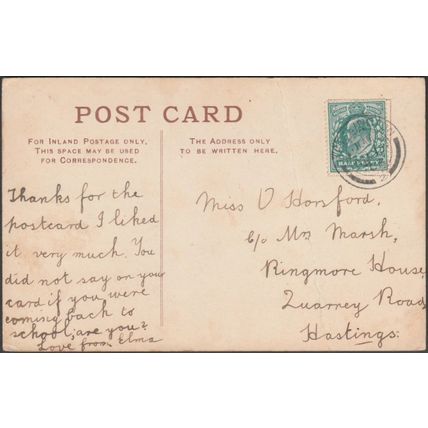 POST CARD
FOR INLAND POSTAGE ONLY,
THIS SPACE MAY BE USED
FOR CORRESPONDENCE.
THE ADDRESS ONLY
TO BE WRITTEN HERE.
HALFPENNY
Thanks for the
postcard I liked
it very much. You
did not say on your
card if you were
coming back to
school, are you?
Love from Elma
Miss V Horsford,
c/o Mrs Marsh,
Ringmore House,
Quarrey Road
Hastings.